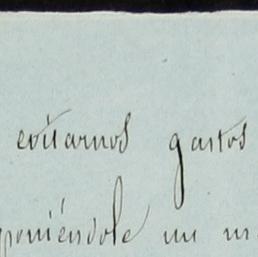 evitarnos gastos
poniéndole un